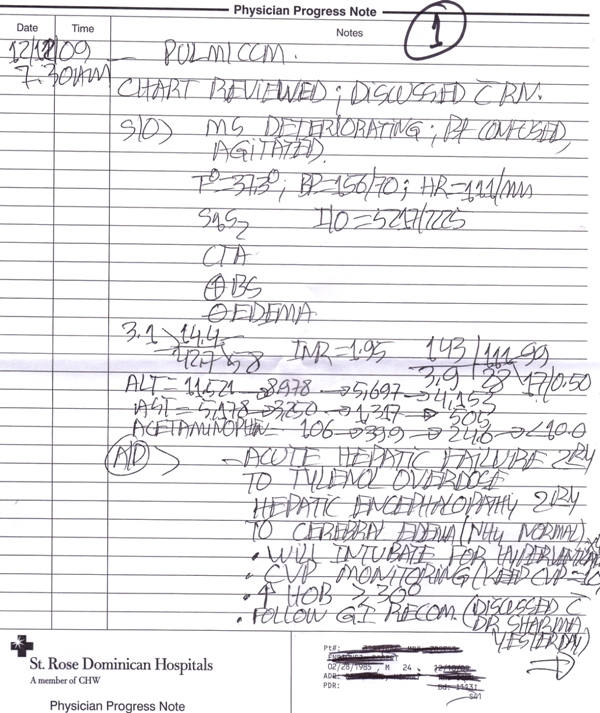 Physician Progress Note
1
Date Time Notes
12/12/09 — PULM/CCM.
7:30AM
CHART REVIEWED; DISCUSSED C̄ RN.
S/O) MS DETERIORATING; PT CONFUSED,
AGITATED.
T°=37.3°; BP=156/70; HR=111/min
I/O=5217/7225
CTA
⊕BS
⊖EDEMA
3.1 14.4 INR=1.95 143 111 99
42.7 58 3.9 23 17/0.50
ALT= 11,521 → 8978 → 5,697 → 4,153
AST= 5,178 → 3250 → 1,317 → 505
ACETAMINOPHIN= 106 → 39.9 → 24.6 → <10.0
A/P) - ACUTE HEPATIC FAILURE 2RY
TO TYLENOL OVERDOSE
HEPATIC ENCEPHALOPATHY 2RY
TO CEREBRAL EDEMA (NH4 NORMAL)
• WILL INTUBATE FOR
• CVP MONITORING (KEEP CVP
• ↑ HOB ≥ 30°
• FOLLOW GI RECOM. (DISCUSSED C̄
DR SHARMA
YESTERDAY)
→
St. Rose Dominican Hospitals
A member of CHW
Physician Progress Note
Pt#:
02/28/1985, M 24
ADR:
PDR: